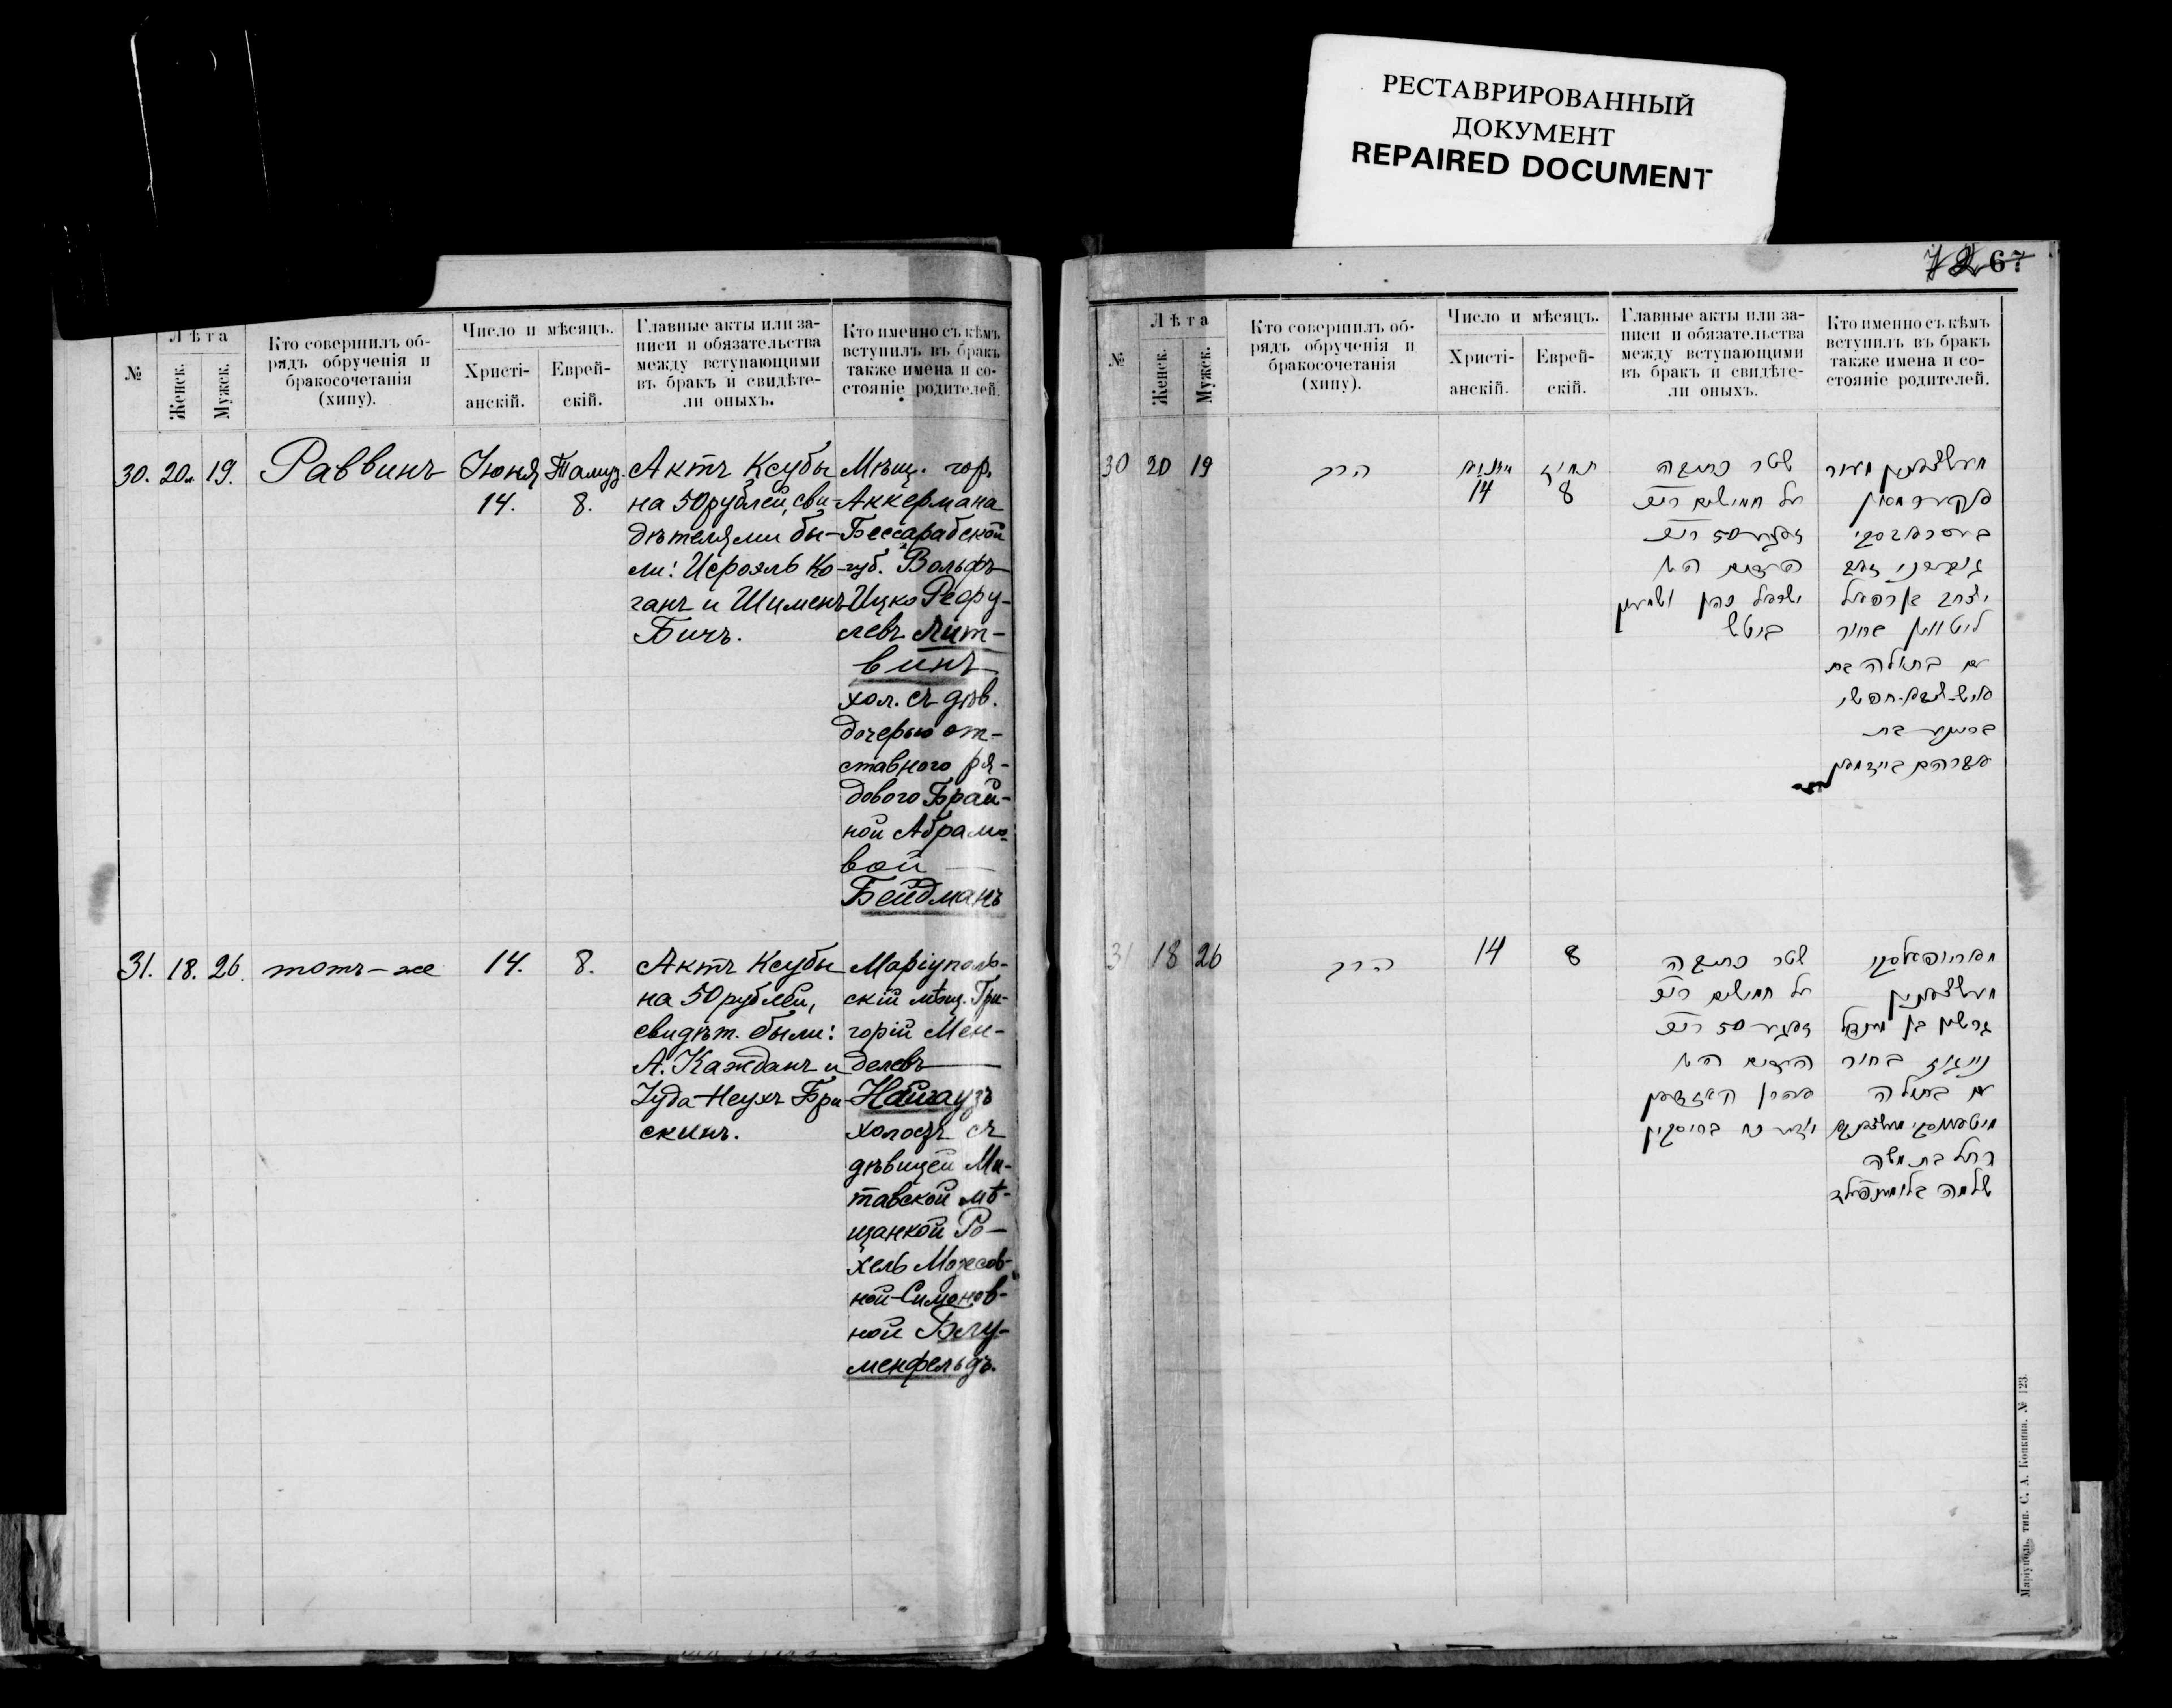 РЕСТАВРИРОВАННЫЙ
ДОКУМЕНТ
REPAIRED DOCUMENT
67
№
Лѣта
Женск.
Мужск.
Кто совершилъ об-
рядъ обрученія и
бракосочетанія
(хипу).
Число и мѣсяцъ.
Христі-
анскій.
Еврей-
скій.
Главные акты или за-
писи и обязательства
между вступающими
въ бракъ и свидѣте-
ли оныхъ.
Кто именно съ кѣмъ
вступилъ въ бракъ
также имена и со-
стояніе родителей.
30. 20. 19.
Раввинъ
Іюня
14.
Тамуз.
8.
Актъ Ксубы
на 50 рублей, сви-
дѣтелями бы-
ли: Исроэль Ко-
ганъ и Шименъ
Бичъ.
Мѣщ. гор.
Аккермана
Бессарабской
губ. Вольфъ
Ицко Рефу-
левъ Лит-
винъ
хол. съ дѣв.
дочерью от-
ставного ря-
дового Брай-
ной Абрамо-
вой
Бейдманъ
31. 18. 26.
тотъ-же
14.
8.
Актъ Ксубы
на 50 рублей,
свидѣт. были:
А. Кажданъ и
Іуда-Неухъ Бри-
скинъ.
Маріуполь-
скій мѣщ. Гри-
горій Мен-
делевъ
Найгаузъ
холостъ съ
дѣвицей Ми-
тавской мѣ-
щанкой Ро-
хель Мозесов-
ной-Симонов-
ной Блу-
менфельдъ.
№
Лѣта
Женск.
Мужск.
Кто совершилъ об-
рядъ обрученія и
бракосочетанія
(хипу).
Число и мѣсяцъ.
Христі-
анскій.
Еврей-
скій.
Главные акты или за-
писи и обязательства
между вступающими
въ бракъ и свидѣте-
ли оныхъ.
Кто именно съ кѣмъ
вступилъ въ бракъ
также имена и со-
стояніе родителей.
30 20 19
הרב
14
תמוז
8
שטר כתובה
על חמישים
50
העדים
ישראל כהן ושמעון
ביטש
יצחק
ליטווין בחור
עם בתולה בת
בריינע בת
אברהם ביידמאן
31 18 26
הרב
14
8
שטר כתובה
על חמישים
50
העדים
אהרן קאזדאן
ויודא נח בריסקין
מאריופאלסקי
גרשון בן מענדל
נייגוז בחור
עם בתולה
רחל בת משה
שלמה בלומענפעלד
Маріуполь, тип. С. А. Копкина. № 123.